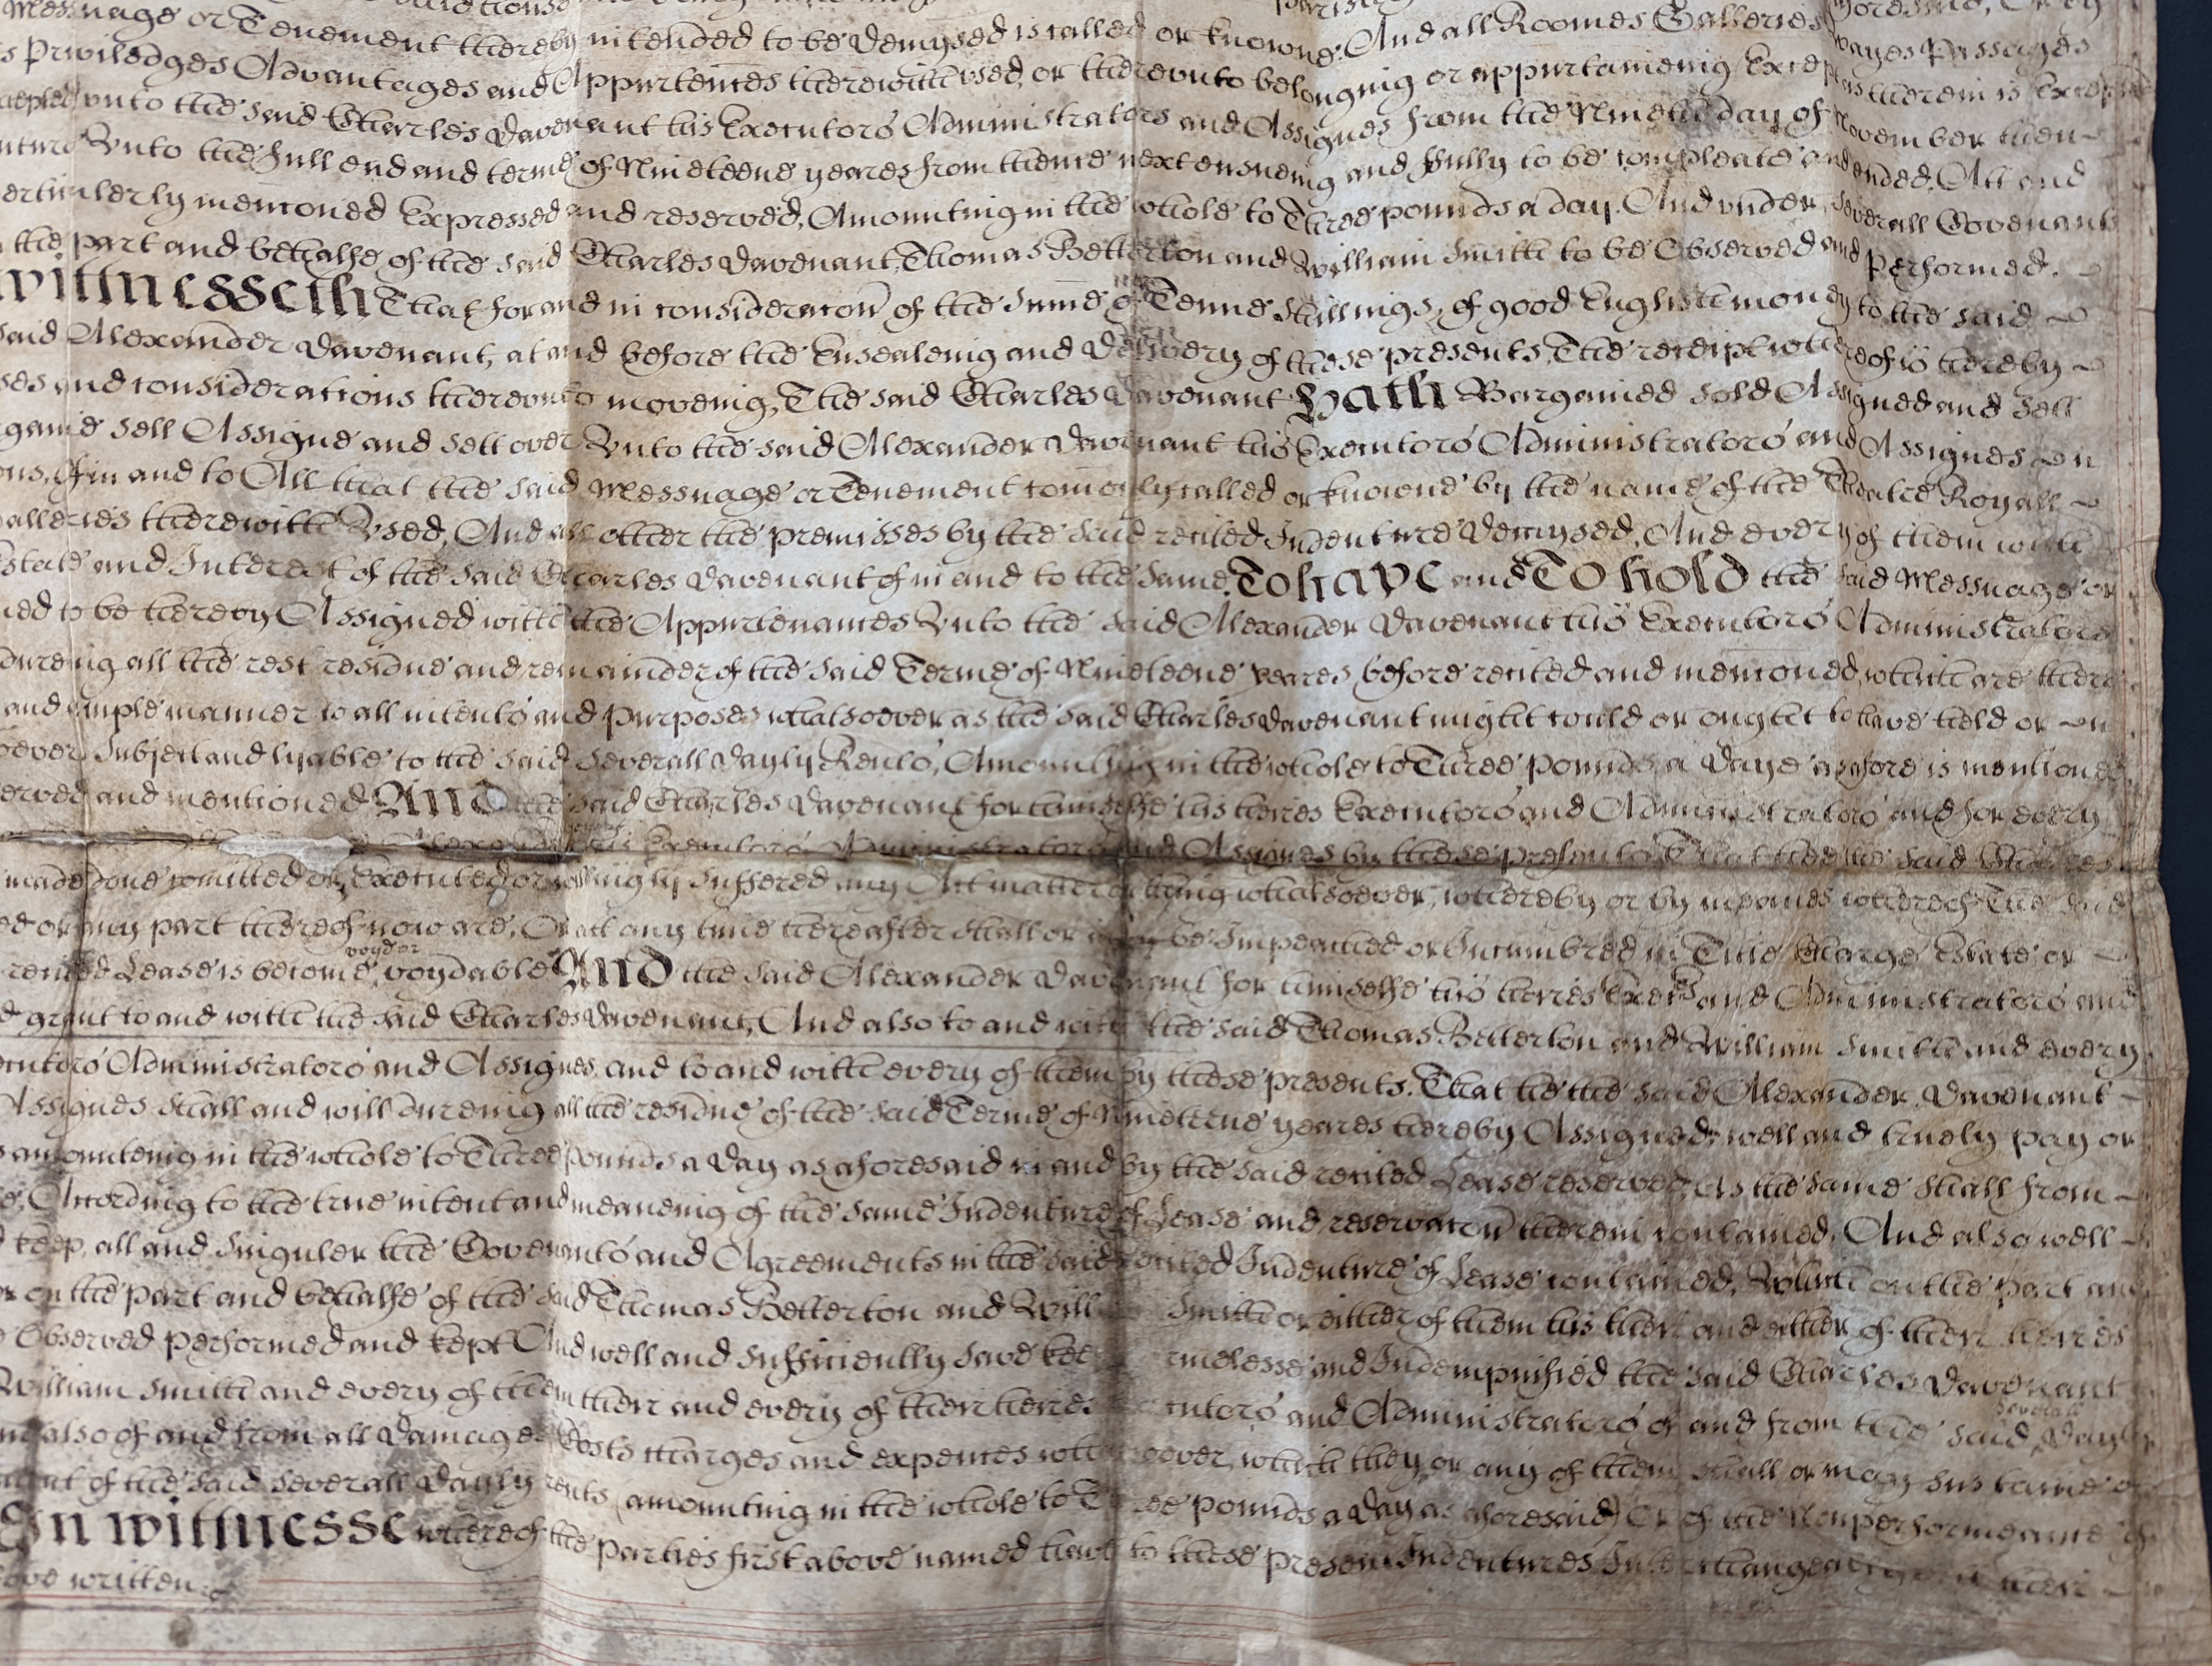 Messuage or Tenement thereby intended to be demysed is called or knowne. And all Roomes Galleries
s Priviledges Advantages and Appurtences therewith used, or thereunto belonging or appurtaineing Except wayes Passages
cepted unto the said Charles Davenant his Executors Administrators and Assignes from the Nineth day of November then
nture Unto the full end and terme of Nineteene yeares from thence next ensueing and fully to be compleate and ended, Att and
erticulerly mencioned Expressed and reserved, Amounting in the whole to Three pounds a day. And under severall Covenants
the part and behalfe of the said Charles Davenant, Thomas Betterton and William Smith to be Observed and Performed.
Wittnesseth That for and in consideracon of the Sume of Tenne Shillings, of good English money to the said
said Alexander Davenant, at and before the Ensealeing and Delivery of these presents, The receipt whereof is hereby
ses and considerations thereunto moveing, The said Charles Davenant Hath Bargained sold Assigned and sett
gaine sell Assigne and sett over Unto the said Alexander Davenant his Executors Administrators and Assignes
ons, Of in and to All that the said Messuage or Tenement comonly called or knowne by the name of the Theatre Royall
alleries therewith Used, And all other the premisses by the said recited Indenture Demysed, And every of them with
state and Interest of the said Charles Davenant of in and to the same, To have and To hold the said Messuage or
ed to be hereby Assigned with the Appurtenances Unto the said Alexander Davenant his Executors Administrators
dureing all the rest residue and remainder of the said Terme of Nineteene yeares before recited and mencioned, which are there
and ample manner to all intents and purposes whatsoever as the said Charles Davenant might could or ought to have held or
oever Subject and lyable to the said severall dayly Rents, Amounting in the whole to Three pounds a Daye as afore is mentioned
erved and mentioned And the said Charles Davenant for himselfe his heires Executors and Administrators and for every
Alexander his Executors Administrators and Assignes by these presents That hee the said Charles
made done comitted or Executed or willingly suffered any Act matter or thing whatsoever, whereby or by meanes whereof The said
ed or any part thereof now are, Or att any time hereafter shall or may be Impeached or Incumbred in Title Charge Estate or
recited Lease is become voyd or voydable And the said Alexander Davenant for himselfe his heires Exers and Administrators and
d grant to and with the said Charles Davenant, And also to and with the said Thomas Betterton and William Smith and every
ecutors Administrators and Assignes and to and with every of them by these presents. That he the said Alexander Davenant
Assignes shall and will dureing all the residue of the said Terme of Nineteene yeares hereby Assigned, well and truely pay or
s amounteing in the whole to Three pounds a Day as aforesaid in and by the said recited Lease reserved, As the same shall from
e, According to the true intent and meaneing of the same Indenture of Lease and reservacon therein contained, And also well
d keep, all and singuler the Covenants and Agreements in the said recited Indenture of Lease contained, Which on the part and
or on the part and behalfe of the said Thomas Betterton and Will Smith or either of them his their and either of their heires
e Observed performed and kept And well and sufficiently save kee rmelesse and Indempnified the said Charles Davenant
William Smith and every of them their and every of their heires ecutors and Administrators of and from the said severall Dayly
nd also of and from all Damages Costs charges and expences wh soever, which they or any of them shall or may sustaine or
ment of the said severall Dayly rents (amounting in the whole to Three pounds a Day as aforesaid) Or of the Nonperformeance of
In wittnesse whereof the parties first above named have to these present Indentures Interchangeably their
bove written.